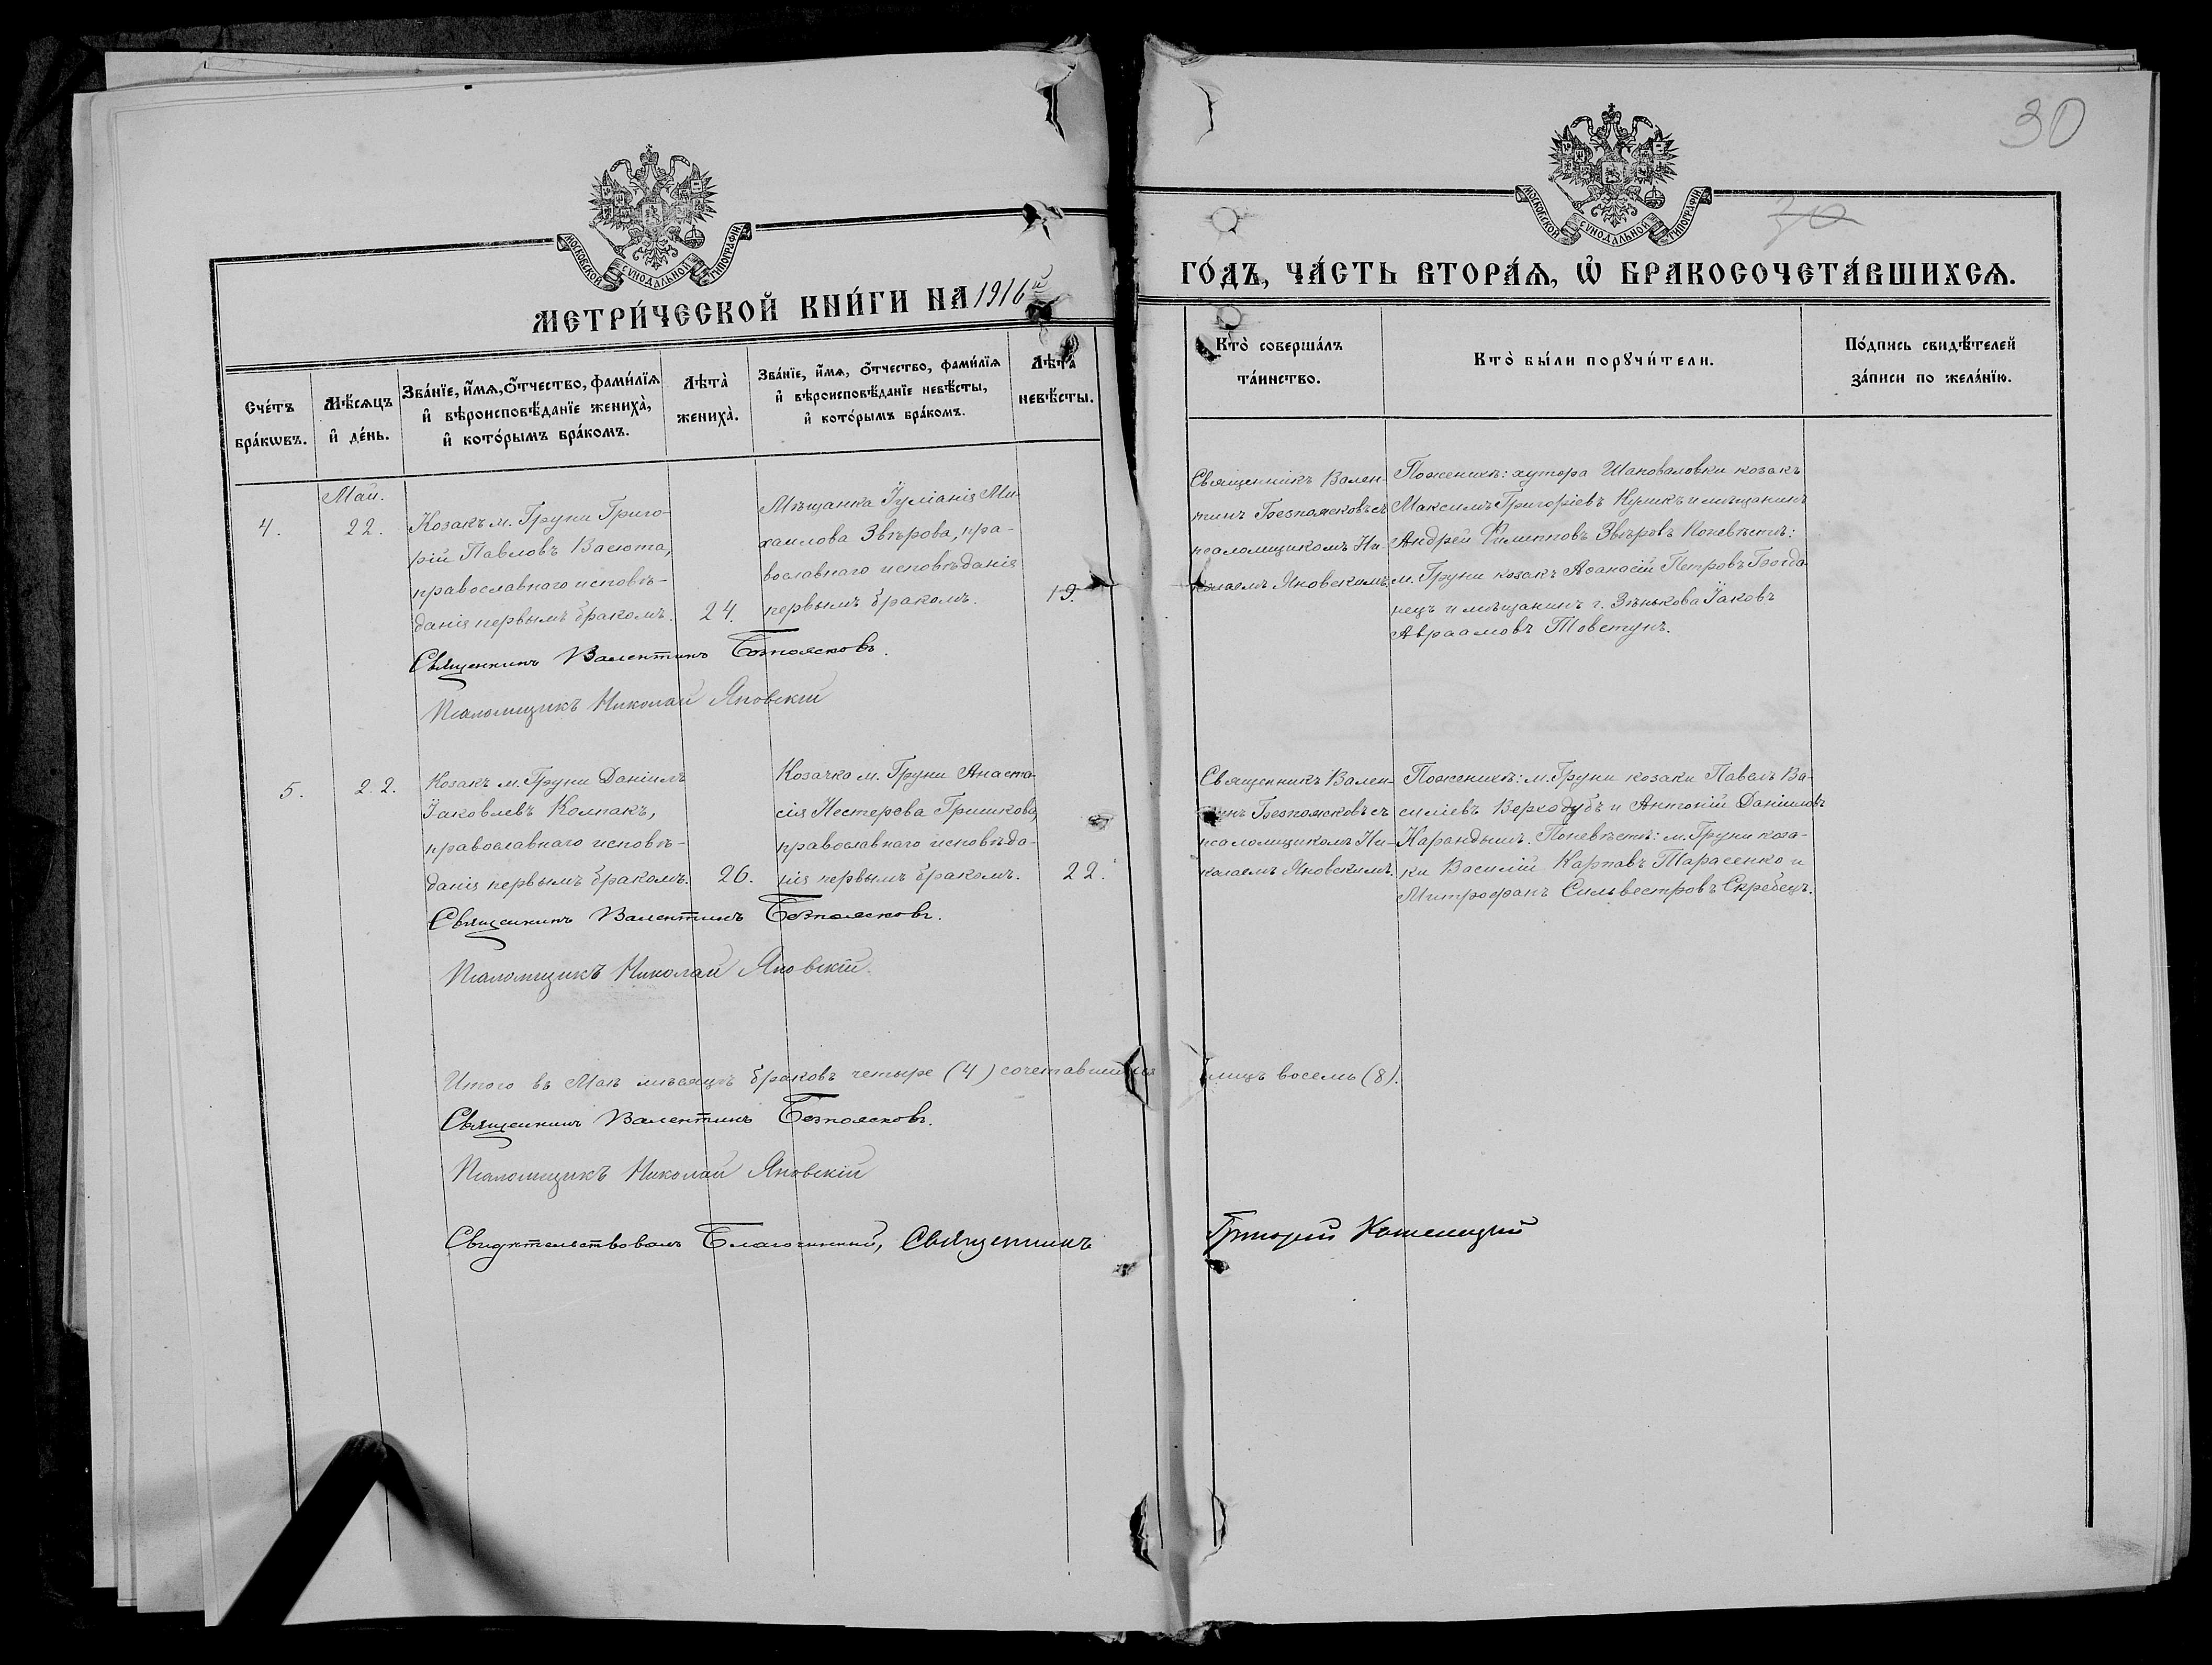 30
30
МОСКОВСКОЙ СѴНОДАЛЬНОЙ ТИПОГРАФІИ
МОСКОВСКОЙ СѴНОДАЛЬНОЙ ТИПОГРАФІИ
МЕТРИ́ЧЕСКОЙ КНИ́ГИ НА 1916й
ГО́ДЪ, ЧА́СТЬ ВТОРА́Ѧ, Ѡ҆ БРАКОСОЧЕТА́ВШИХСѦ.
Сче́тъ бра́кѡвъ.
Мѣ́сѧцъ и҆ де́нь.
Зва́нїе, и҆́мѧ, ѻ҆́тчество, фами́лїѧ и҆ вѣроисповѣ́данїе жениха̀, и҆ кото́рымъ бра́комъ.
Лѣта̀ жениха̀.
Зва́нїе, и҆́мѧ, ѻ҆́тчество, фами́лїѧ и҆ вѣроисповѣ́данїе невѣ́сты, и҆ кото́рымъ бра́комъ.
Лѣта̀ невѣ́сты.
Кто̀ соверша́лъ та́инство.
Кто̀ бы́ли порꙋчи́тели.
По́дпись свидѣ́телей за́писи по жела́нїю.
Май.
4.
22.
Козакъ м. Груни Григо-
рій Павловъ Васюта,
православнаго исповѣ-
данія первымъ бракомъ.
24.
Мѣщанка Іуліанія Ми-
хаилова Звѣрова, пра-
вославнаго исповѣданія
первымъ бракомъ.
19.
Священникъ Вален-
тинъ Безпоясковъ съ
псаломщикомъ Ни-
колаемъ Яновскимъ.
Поженихѣ: хутора Шаповаловки козакъ
Максимъ Григоріевъ Куликъ и мѣщанинъ
Андрей Филипповъ Звѣровъ Поневѣстѣ:
м. Груни козакъ Аѳанасій Петровъ Богда
нецъ и мѣщанинъ г. Зѣнькова Іаковъ
Авраамовъ Товстунъ.
Священникъ Валентинъ Безпоясковъ.
Псаломщикъ Николай Яновскій
5.
22.
Козакъ м. Груни Даніилъ
Іаковлевъ Колпакъ,
православнаго исповѣ-
данія первымъ бракомъ.
26.
Козачка м. Груни Анаста-
сія Нестерова Гришкова,
православнаго исповѣда-
нія первымъ бракомъ.
22.
Священникъ Вален-
тинъ Безпоясковъ съ
псаломщикомъ Ни-
колаемъ Яновскимъ.
Поженихѣ: м. Груни козаки Павелъ Ва-
силіевъ Верходубъ и Антоній Даніиловъ
Карандышъ. Поневѣстѣ: м. Груни коза-
ки Василій Карповъ Тарасенко и
Митрофанъ Сильвестровъ Скребецъ.
Священникъ Валентинъ Безпоясковъ.
Псаломщикъ Николай Яновскій.
Итого въ Маѣ мѣсяцѣ браковъ четыре (4) сочетавшихся лицъ восемь (8).
Священникъ Валентинъ Безпоясковъ.
Псаломщикъ Николай Яновскій
Свидѣтельствовалъ Благочинный, Священникъ Григорій